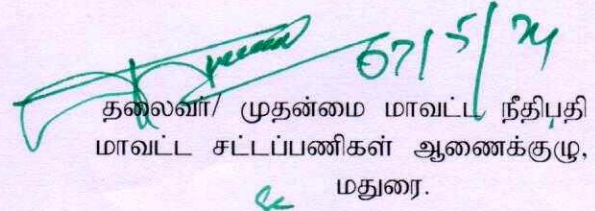 07/5/24
தலைவர்/ முதன்மை மாவட்ட நீதிபதி
மாவட்ட சட்டப்பணிகள் ஆணைக்குழு,
மதுரை.